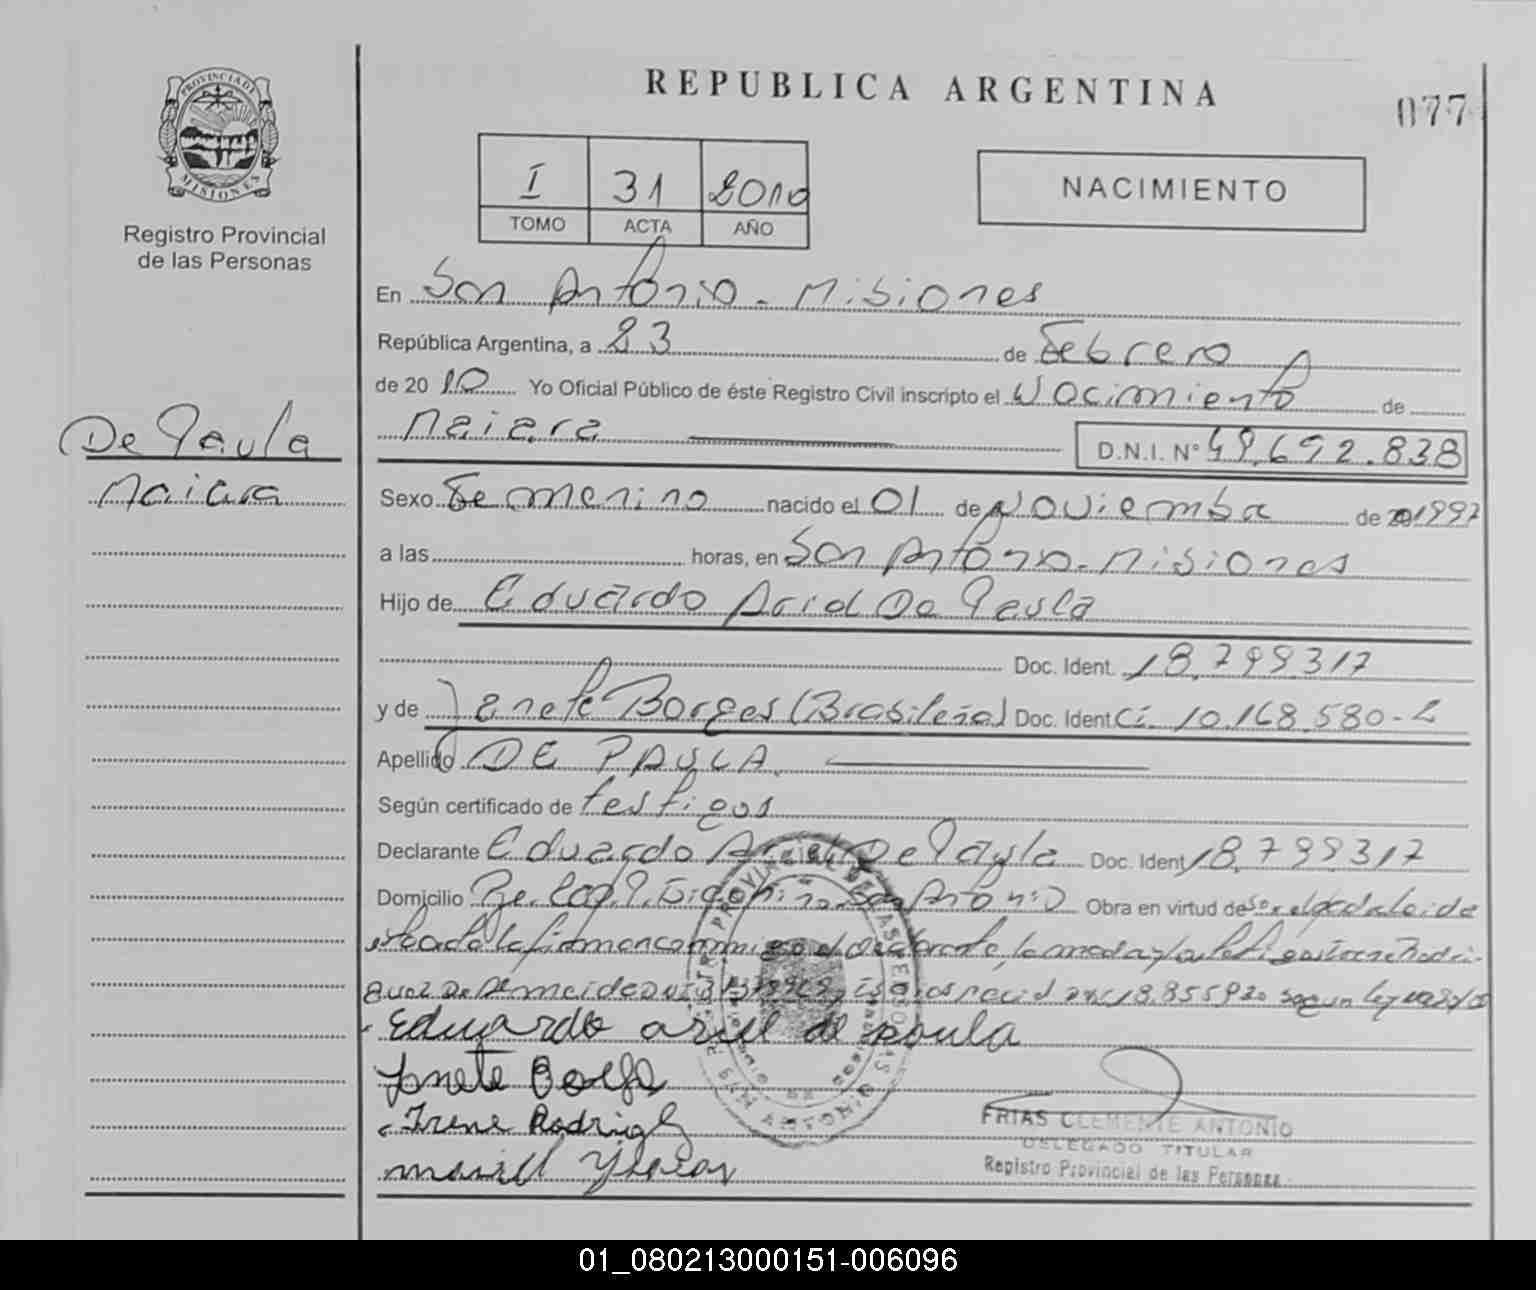 REPUBLICA ARGENTINA
077
PROVINCIA DE
MISIONES
Registro Provincial
de las Personas
I 31 2010
TOMO ACTA AÑO
NACIMIENTO
En San Antonio - Misiones
República Argentina, a 23 de Febrero
de 20 10 Yo Oficial Público de éste Registro Civil inscripto el Nacimiento de
Naiara D.N.I. Nº 49.692.838
De Paula
Naiara
Sexo Femenino nacido el 01 de Noviembre de 20 1997
a las horas, en San Antonio - Misiones
Hijo de Eduardo Ariel De Paula
Doc. Ident. 18.799.317
y de Janete Borges (Brasileña) Doc. Ident C.i. 10.168.580-2
Apellido DE PAULA
Según certificado de testigos
Declarante Eduardo Ariel De Paula Doc. Ident 18.799.317
Domicilio San Antonio Obra en virtud de
la firman conmigo el declarante, la madre y
18.855.920 segun Ley
Eduardo ariel de paula
Janete Borges
Irene Rodrigez
FRIAS CLEMENTE ANTONIO
DELEGADO TITULAR
Registro Provincial de las Personas
01_080213000151-006096